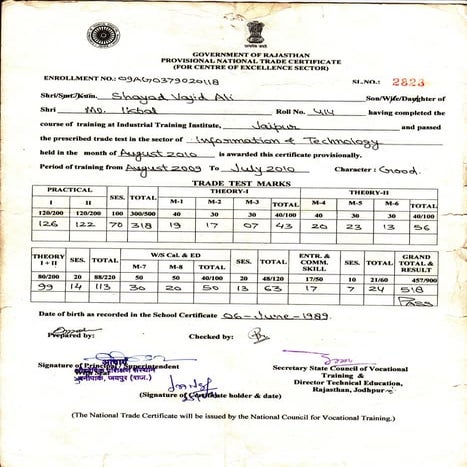 GOVERNMENT OF RAJASTHAN
PROVISIONAL NATIONAL TRADE CERTIFICATE
(FOR CENTRE OF EXCELLENCE SECTOR)
ENROLLMENT NO.: 09AG0379020118 SL.NO.: 2823
Shri/Smt./Kum. Shayad Vajid Ali Son/Wife/Daughter of
Shri Md. Ikbal Roll No. 414 having completed the
course of training at Industrial Training Institute, Jaipur and passed
the prescribed trade test in the sector of Information & Technology
held in the month of August 2010 is awarded this certificate provisionally.
Period of training from August 2009 To July 2010 Character: Good.
TRADE TEST MARKS
PRACTICAL SES. TOTAL THEORY-I THEORY-II
I II M-1 M-2 M-3 TOTAL M-4 M-5 M-6 TOTAL
120/200 120/200 100 300/500 40 30 30 40/100 40 30 30 40/100
126 122 70 318 19 17 07 43 20 23 13 56
THEORY I + II SES. TOTAL W/S Cal. & ED SES. TOTAL ENTR. & COMM. SKILL SES. TOTAL GRAND TOTAL & RESULT
M-7 M-8 TOTAL
80/200 20 88/220 50 50 40/100 20 48/120 17/50 10 21/60 457/900
99 14 113 30 20 50 13 63 17 7 24 518
Pass
Date of birth as recorded in the School Certificate 06-June-1989.
Prepared by: Checked by:
आचार्य
Signature of Principal / Superintendent
औद्योगिक प्रशिक्षण संस्थान
जयपुर (राज.)
(Signature of Certificate holder & date)
Secretary State Council of Vocational
Training &
Director Technical Education,
Rajasthan, Jodhpur
(The National Trade Certificate will be issued by the National Council for Vocational Training.)